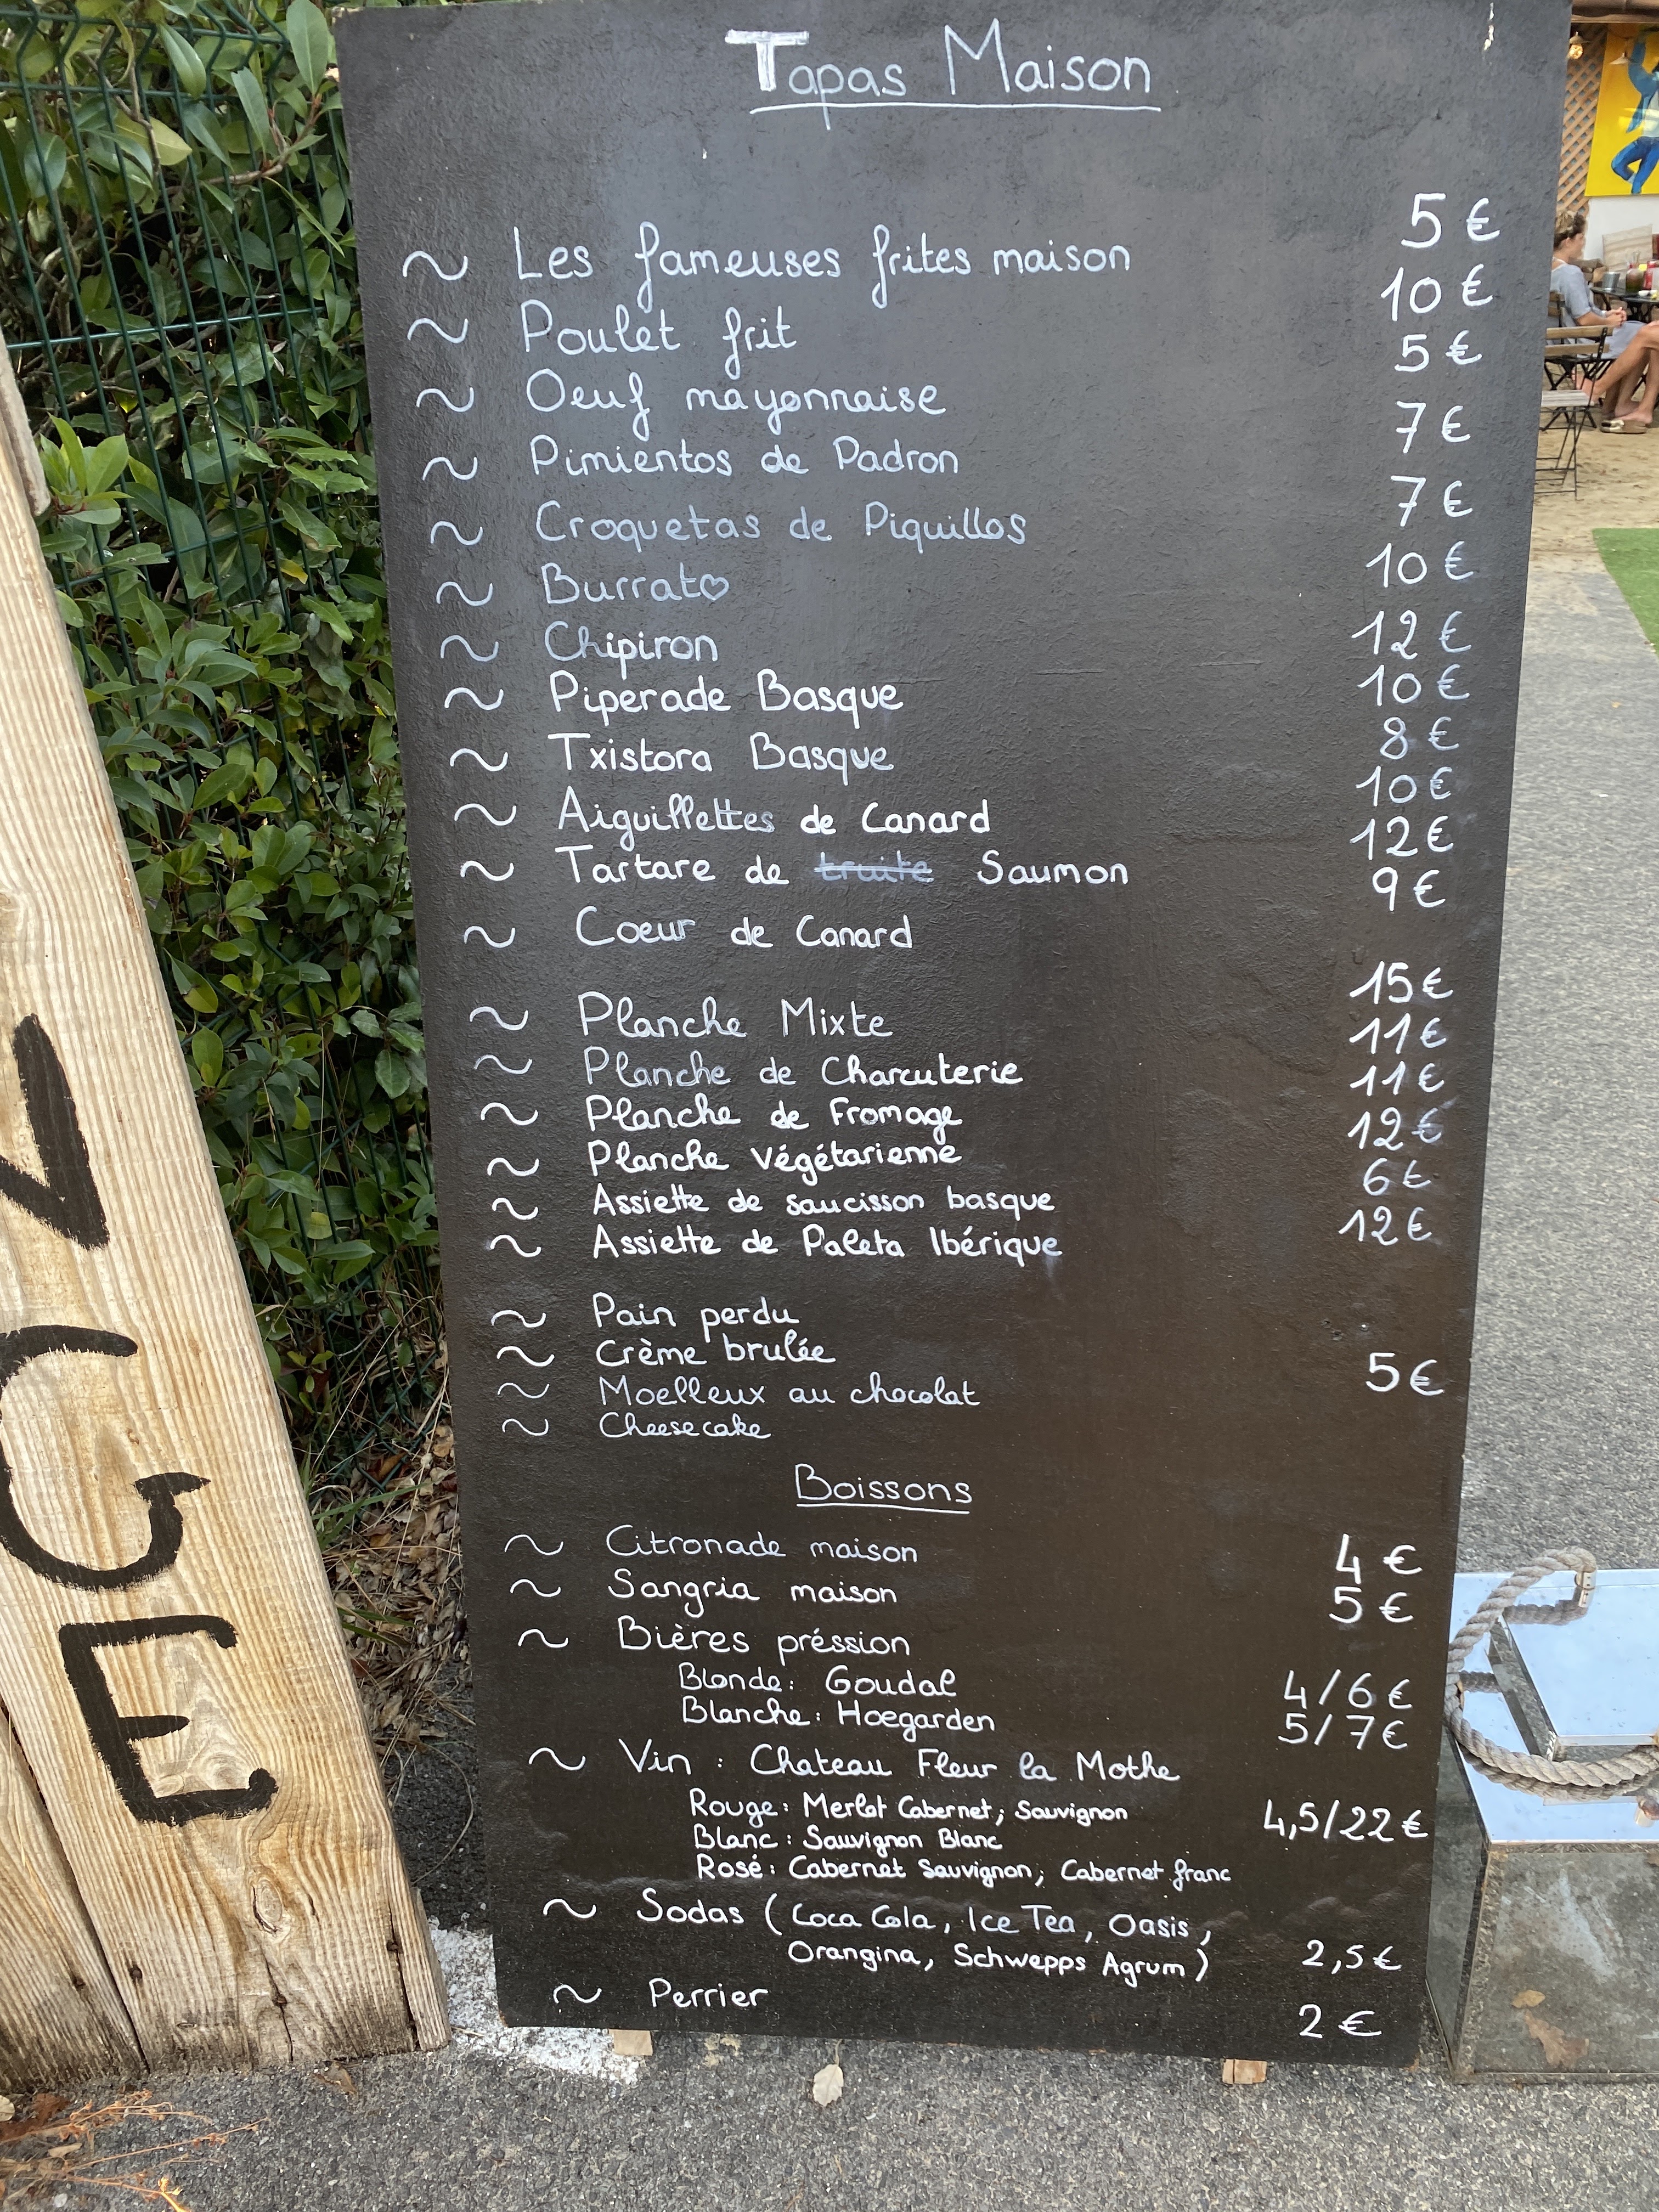 Tapas Maison
~ Les fameuses frites maison 5€
~ Poulet frit 10€
~ Oeuf mayonnaise 5€
~ Pimientos de Padron 7€
~ Croquetas de Piquillos 7€
~ Burrat♡ 10€
~ Chipiron 12€
~ Piperade Basque 10€
~ Txistora Basque 8€
~ Aiguillettes de Canard 10€
~ Tartare de truite Saumon 12€
~ Coeur de Canard 9€
~ Planche Mixte 15€
~ Planche de Charcuterie 11€
~ Planche de Fromage 11€
~ Planche végétarienne 12€
~ Assiette de saucisson basque 6€
~ Assiette de Paleta Ibérique 12€
~ Pain perdu
~ Crème brulée
~ Moelleux au chocolat 5€
~ Cheesecake
Boissons
~ Citronade maison 4€
~ Sangria maison 5€
~ Bières préssion
Blonde: Goudal 4/6€
Blanche: Hoegarden 5/7€
~ Vin : Chateau Fleur la Mothe
Rouge: Merlot Cabernet; Sauvignon 4,5/22€
Blanc: Sauvignon Blanc
Rosé: Cabernet Sauvignon; Cabernet franc
~ Sodas (Coca Cola, Ice Tea, Oasis,
Orangina, Schwepps Agrum) 2,5€
~ Perrier 2€
GE